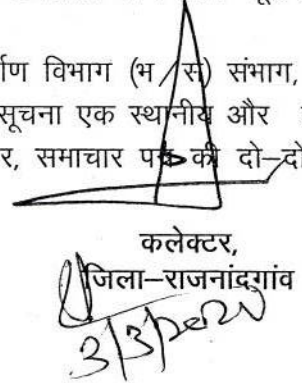 ण विभाग (भ / स) संभाग,
सूचना एक स्थानीय और
र, समाचार पत्र की दो–दो
कलेक्टर,
जिला–राजनांदगांव
3/3/2020